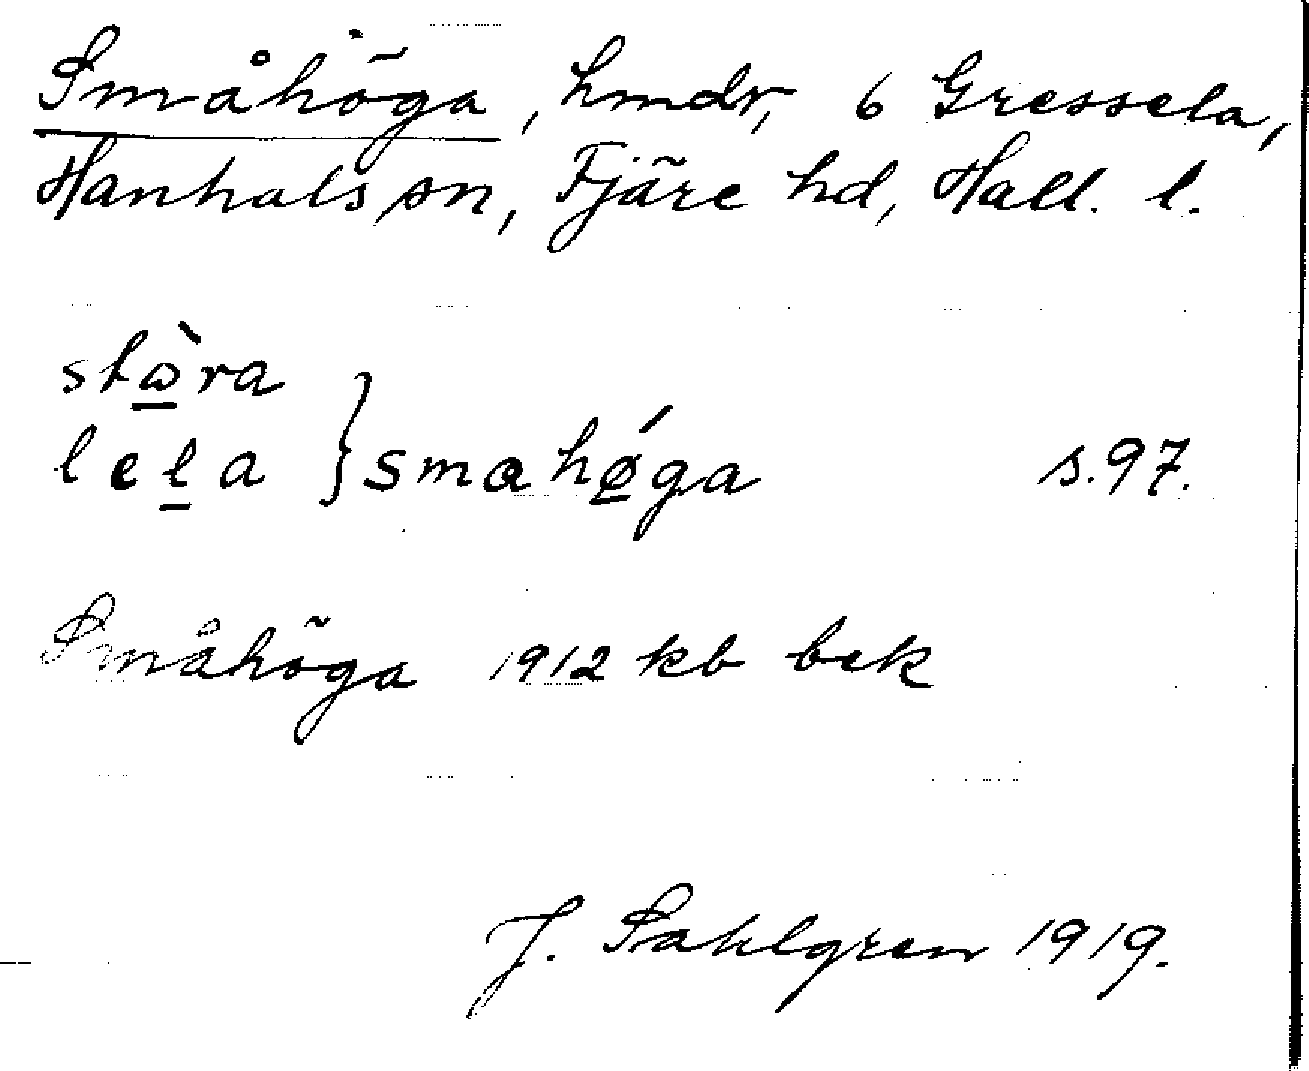 Småhöga, hmdr, 6 Gressela,
Hanhals sn, Fjäre hd, Hall. l.
stὼ̲ra
lel̲a } smahǿ̲ga s. 97.
Småhöga 1912 kb bek
J. Sahlgren 1919.